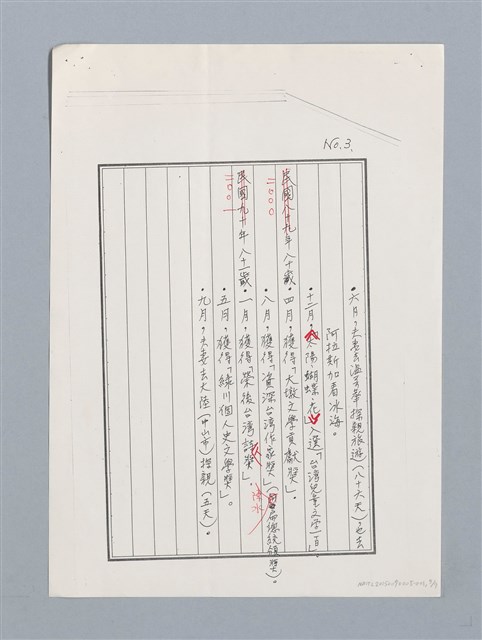 No.3.
•六月,夫妻去溫哥華探親旅遊(八十六天)也去
阿拉斯加看冰海。
•十二月,「太陽・蝴蝶・花」入選「台灣兒童文學一百」。
民國八十九年八十歲•四月,獲得「大墩文學貢獻獎」。
二〇〇〇
八月,獲得「資深台灣作家獎」(阿扁總統領獎)。
陳水
民國九十年八十一歲•一月,獲得「榮後台灣詩獎」。
二〇〇一
五月,獲得「綠川個人史文學獎」。
九月,夫妻去大陸(中山市)探親(五天)。